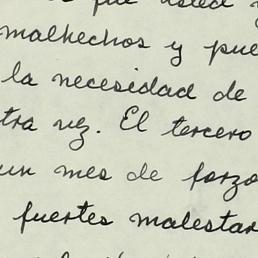 fue usted
malhechos y pue
la necesidad de
tra vez. El tercero
un mes de forzo
fuertes malestar